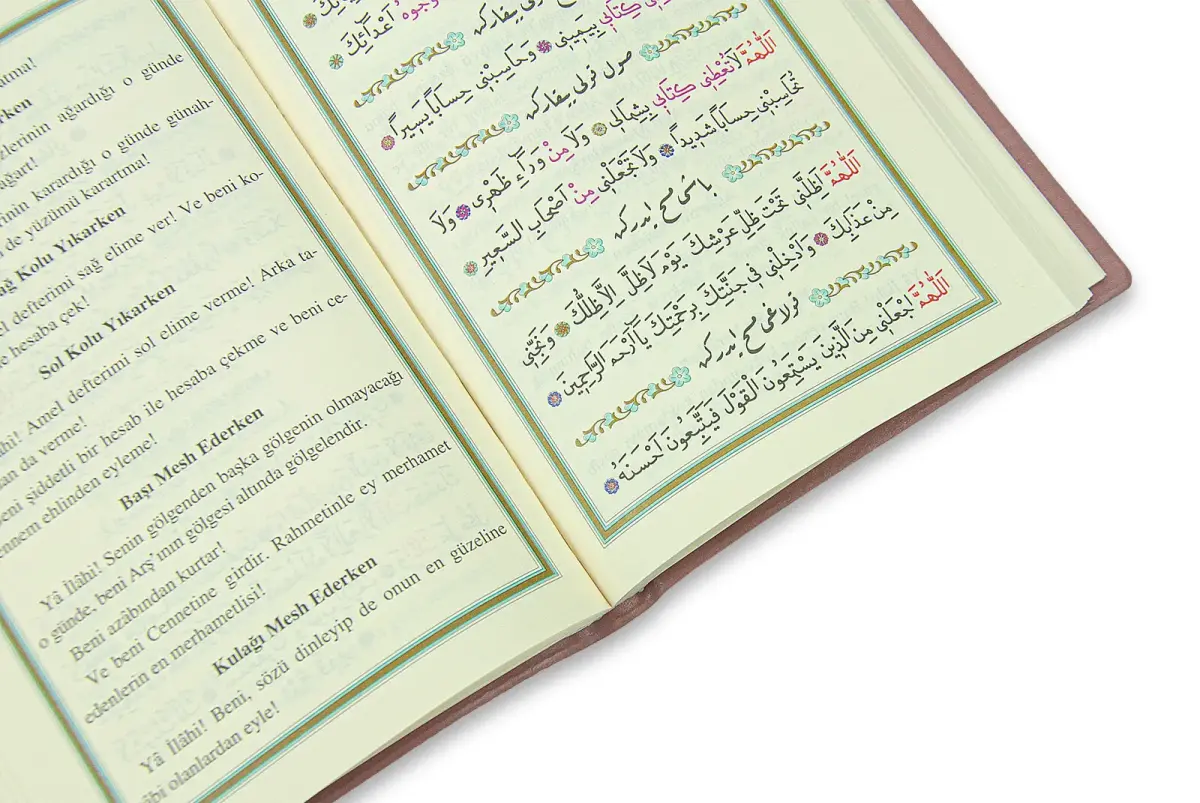 atma!
rken
zlerinin ağardığı o günde
ağart!
rken
rinin karardığı o günde günah-
de yüzümü karartma!
ğ Kolu Yıkarken
el defterimi sağ elime ver! Ve beni ko-
e hesaba çek!
Sol Kolu Yıkarken
hi! Amel defterimi sol elime verme! Arka ta-
an da verme!
eni şiddetli bir hesab ile hesaba çekme ve beni ce-
ennem ehlinden eyleme!
Başı Mesh Ederken
Yâ İlâhi! Senin gölgenden başka gölgenin olmayacağı
o günde, beni Arş'ının gölgesi altında gölgelendir.
Beni azâbından kurtar!
Ve beni Cennetine girdir. Rahmetinle ey merhamet
edenlerin en merhametlisi!
Kulağı Mesh Ederken
Yâ İlâhi! Beni, sözü dinleyip de onun en güzeline
âbi olanlardan eyle!
وُجُوهُ اَعْدَٓائِكَ
كِتَابِى بِيَمِينِى وَحَاسِبْنِى حِسَابًا يَسِيرًا
صول قولی ییقارکن
اَللّٰهُمَّ لَاتُعْطِنِى كِتَابِى بِشِمَالِى وَلَا مِنْ وَرَٓاءِ ظَهْرِى وَلَا
تُحَاسِبْنِى حِسَابًا شَدِيدًا وَلَا تَجْعَلْنِى مِنْ اَصْحَابِ السَّعِيرِ
باشی مسح ایدرکن
اَللّٰهُمَّ اَظِلَّنِى تَحْتَ ظِلِّ عَرْشِكَ يَوْمَ لَاظِلَّ اِلَّاظِلُّكَ وَنَجِّنِى
مِنْ عَذَابِكَ وَاَدْخِلْنِى فِى جَنَّتِكَ بِرَحْمَتِكَ يَٓا اَرْحَمَ الرَّاحِمِينَ
قولاغی مسح ایدرکن
اَللّٰهُمَّ اجْعَلْنِى مِنَ الَّذِينَ يَسْتَمِعُونَ الْقَوْلَ فَيَتَّبِعُونَ اَحْسَنَهُ